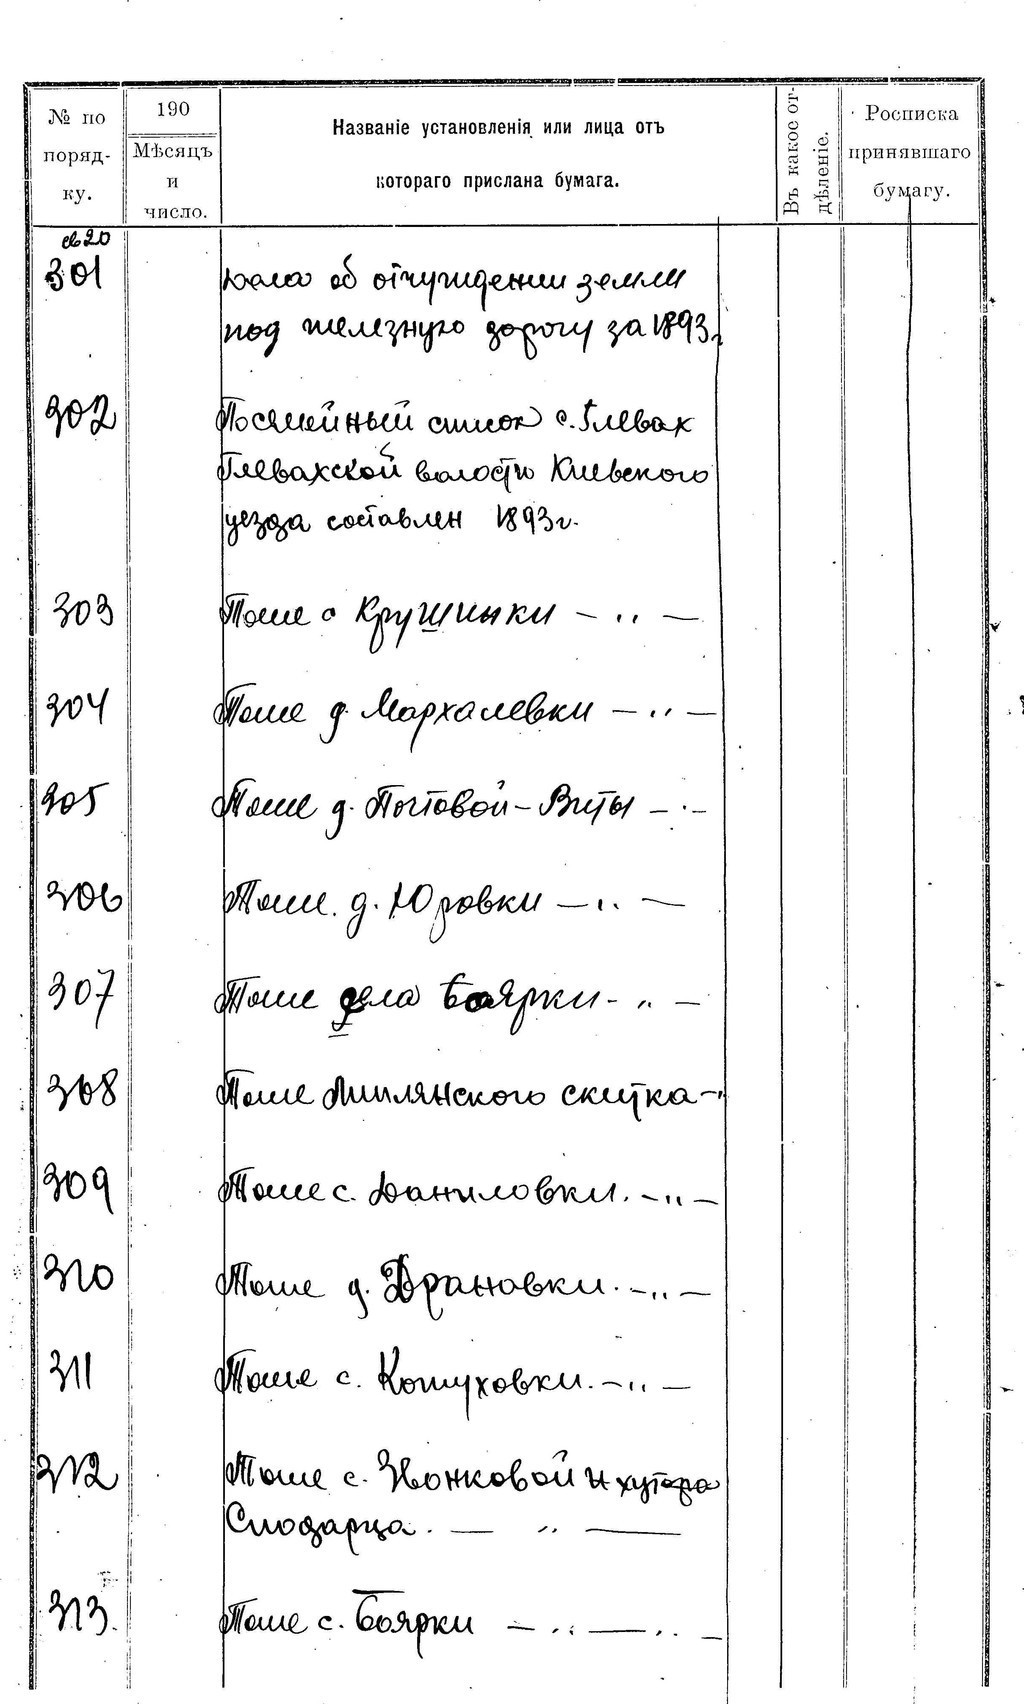 № по поряд- ку.
190
Мѣсяцъ и число.
Названіе установленія или лица отъ
котораго прислана бумага.
Въ какое от- дѣленіе.
Росписка принявшаго бумагу.
св 20
301 Дела об отчуждении земли
под железную дорогу за 1893 г.
302 Посемейный список с. Глевах
Глевахской волости Киевского
уезда составлен 1893 г.
303 Тоже с Крушинки — " —
304 Тоже д. Мархалевки — " —
305 Тоже д. Почтовой-Виты — " —
306 Тоже д. Юровки — " —
307 Тоже села Боярки — " —
308 Тоже скитка — "
309 Тоже с. Даниловки. — " —
310 Тоже д. Драновки. — " —
311 Тоже с. Кожуховки. — " —
312 Тоже с. Звонковой и хутора
— " —
313. Тоже с. Боярки — " — " —